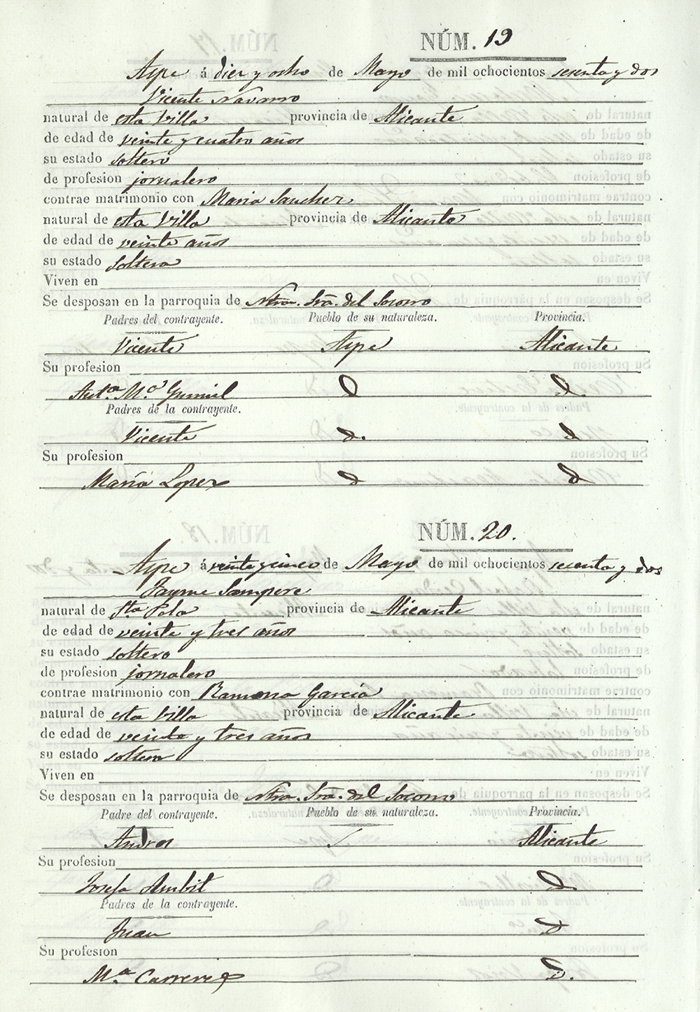 NÚM. 19
Aspe á diez y ocho de Mayo de mil ochocientos sesenta y dos
Vicente Navarro
natural de esta Villa provincia de Alicante
de edad de veinte y cuatro años
su estado soltero
de profesion jornalero
contrae matrimonio con Maria Sanchez
natural de esta Villa provincia de Alicante
de edad de veinte años
su estado soltera
Viven en
Se desposan en la parroquia de Ntra. Sra. del Socorro
Padres del contrayente. Pueblo de su naturaleza. Provincia.
Vicente Aspe Alicante
Su profesion
Ant.ª M.ª D D.
Padres de la contrayente.
Vicente D. D
Su profesion
María Lopez D D
NÚM. 20.
Aspe á veinte y cinco de Mayo de mil ochocientos sesenta y dos
Jayme Sampere
natural de Sta Pola provincia de Alicante
de edad de veinte y tres años
su estado soltero
de profesion jornalero
contrae matrimonio con Ramona García
natural de esta Villa provincia de Alicante
de edad de veinte y tres años
su estado soltera
Viven en
Se desposan en la parroquia de Ntra. Sra. del Socorro
Padre del contrayente. Pueblo de su naturaleza. Provincia.
Andres Alicante
Su profesion
Josefa D
Padres de la contrayente.
Juan D
Su profesion
M.ª D.